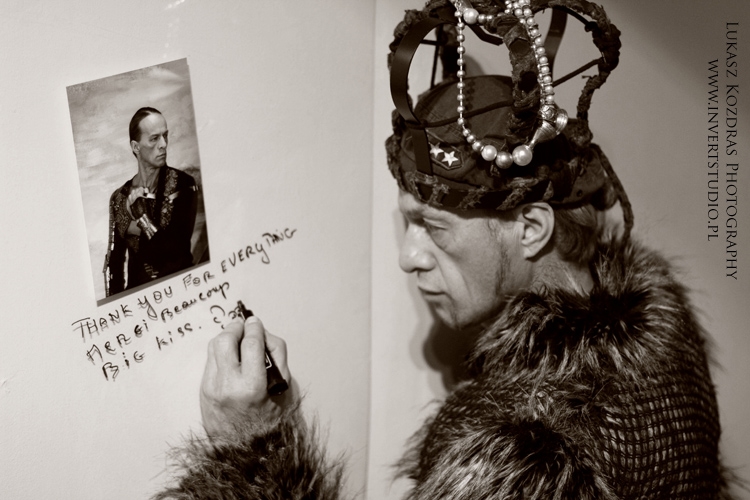 THANK YOU FOR EVERYTING
MERCI BEAUCOUP
BIG KISS.
LUKASZ KOZDRAS PHOTOGRAPHY
WWW.INVERTSTUDIO.PL